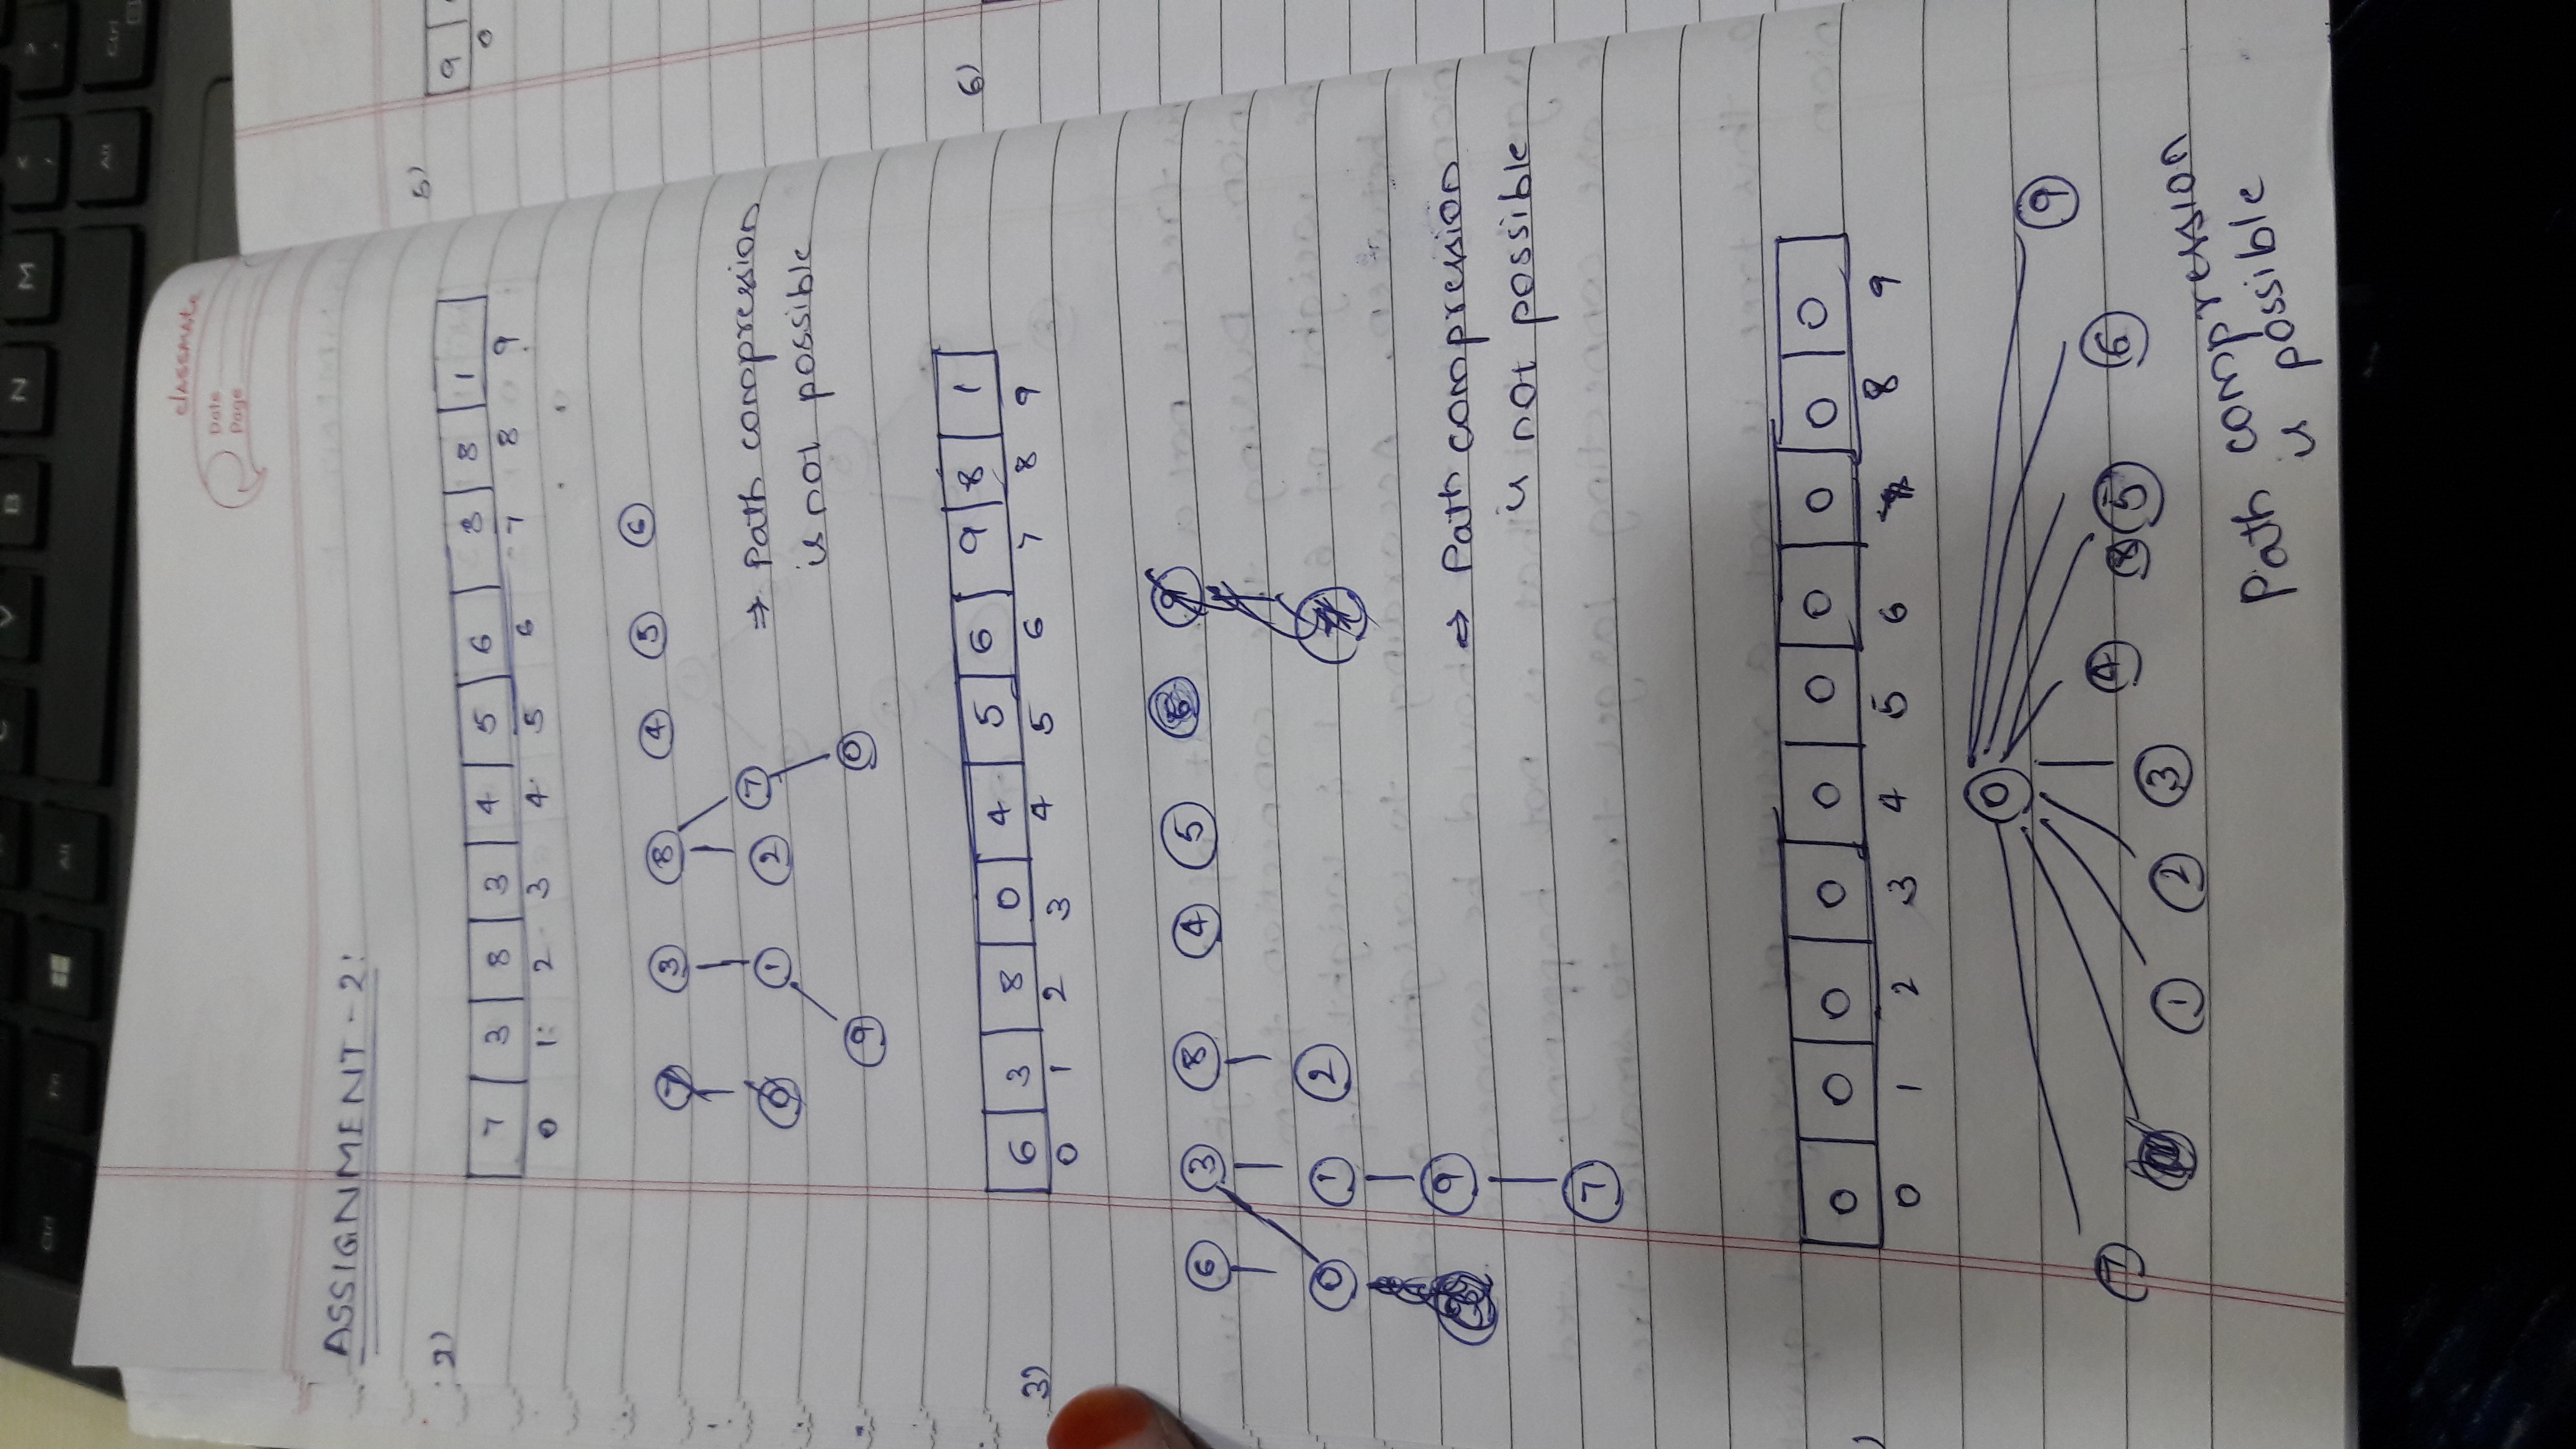 C V B N M < ,
> .
Ctrl Fn Alt Alt Ctrl
classmate
Date
Page
ASSIGNMENT - 2:
2)
7 3 8 3 4 5 6 8 8 1
0 1 2 3 4 5 6 7 8 9
7 3 8 4 5 6
0 1 2 7
⇒ Path compression
is not possible
9 0
3)
6 3 8 0 4 5 6 9 8 1
0 1 2 3 4 5 6 7 8 9
6 3 8 4 5 6 9
0 1 2
9
⇒ Path compression
is not possible
7
)
0 0 0 0 0 0 0 0 0 0
0 1 2 3 4 5 6 7 8 9
0
9
7 1 2 3 4 8 5 6
Path compression
is possible
5)
9
0
6)